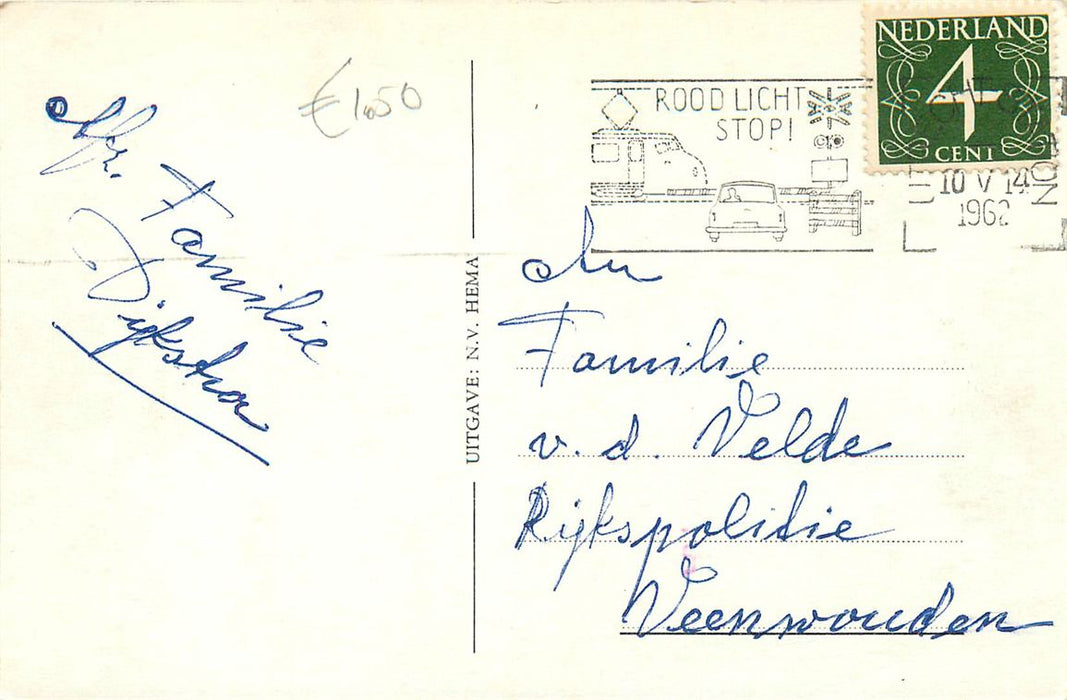 €1.50
Afz. Familie
Dijkstra
UITGAVE: N.V. HEMA
ROOD LICHT
STOP!
NEDERLAND
4
CENT
10 V 14
1962
Aan
Familie
v. d. Velde
Rijkspolitie
Veenwouden